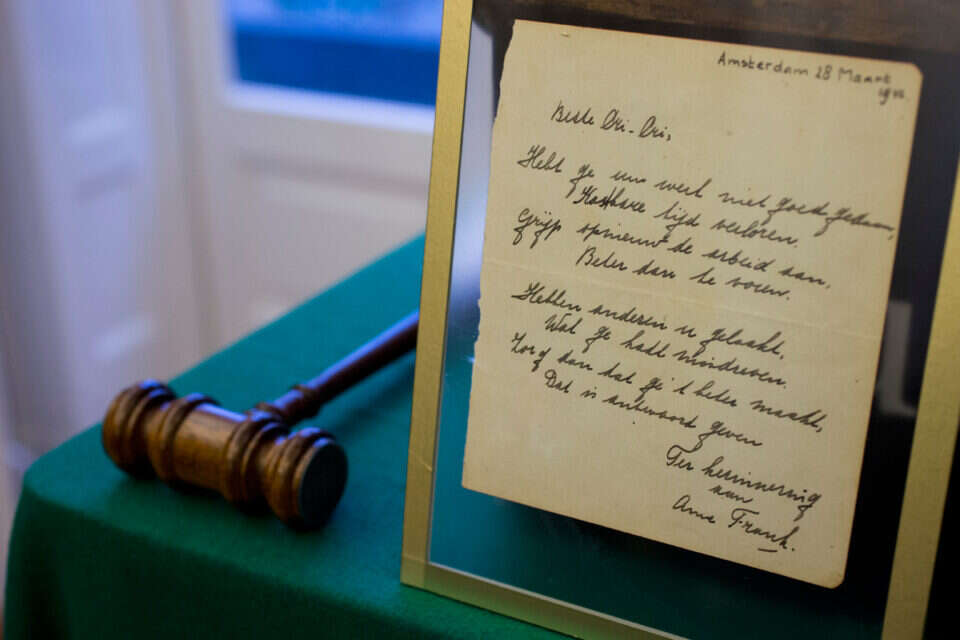 Amsterdam 28 Maart
1942.
Beste Cri-Cri,
Hebt ge uw werk niet goed gedaan,
Kostbare tijd verloren,
Grijp opnieuw de arbeid aan,
Beter dan te voren.
Hebben anderen u gelaakt,
Wat ge hadt misdreven.
Zorg dan dat ge 't beter maakt,
Dat is antwoord geven
Ter herinnering
aan
Anne Frank.